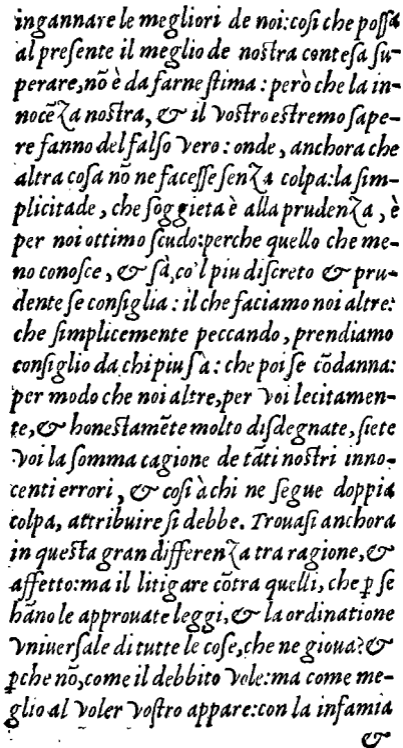 ingannare le megliori de noi:cosi che possa
al presente il meglio de nostra contesa su-
perare,nõ è da farne stima : però che la in-
nocẽza nostra, & il vostro estremo sape-
re fanno del falso vero : onde, anchora che
altra cosa nõ ne facesse senza colpa:la sim-
plicitade, che soggieta è alla prudenza, è
per noi ottimo scudo:perche quello che me-
no conosce, & sà,co'l piu discreto & pru-
dente se consiglia : il che faciamo noi altre:
che simplicemente peccando, prendiamo
consiglio da chi piu sà : che poi se cõdanna:
per modo che noi altre,per voi lecitamen-
te,& honestamẽte molto disdegnate, siete
voi la somma cagione de tãti nostri inno-
centi errori, & cosi à chi ne segue doppia
colpa, attribuire si debbe. Trouasi anchora
in questa gran differenza tra ragione, &
affetto:ma il litigare cõtra quelli, che ꝑ se
hãno le approuate leggi,& la ordinatione
vniuersale di tutte le cose,che ne gioua?&
ꝑche nõ,come il debbito vole:ma come me-
glio al voler vostro appare:con la infamia
&